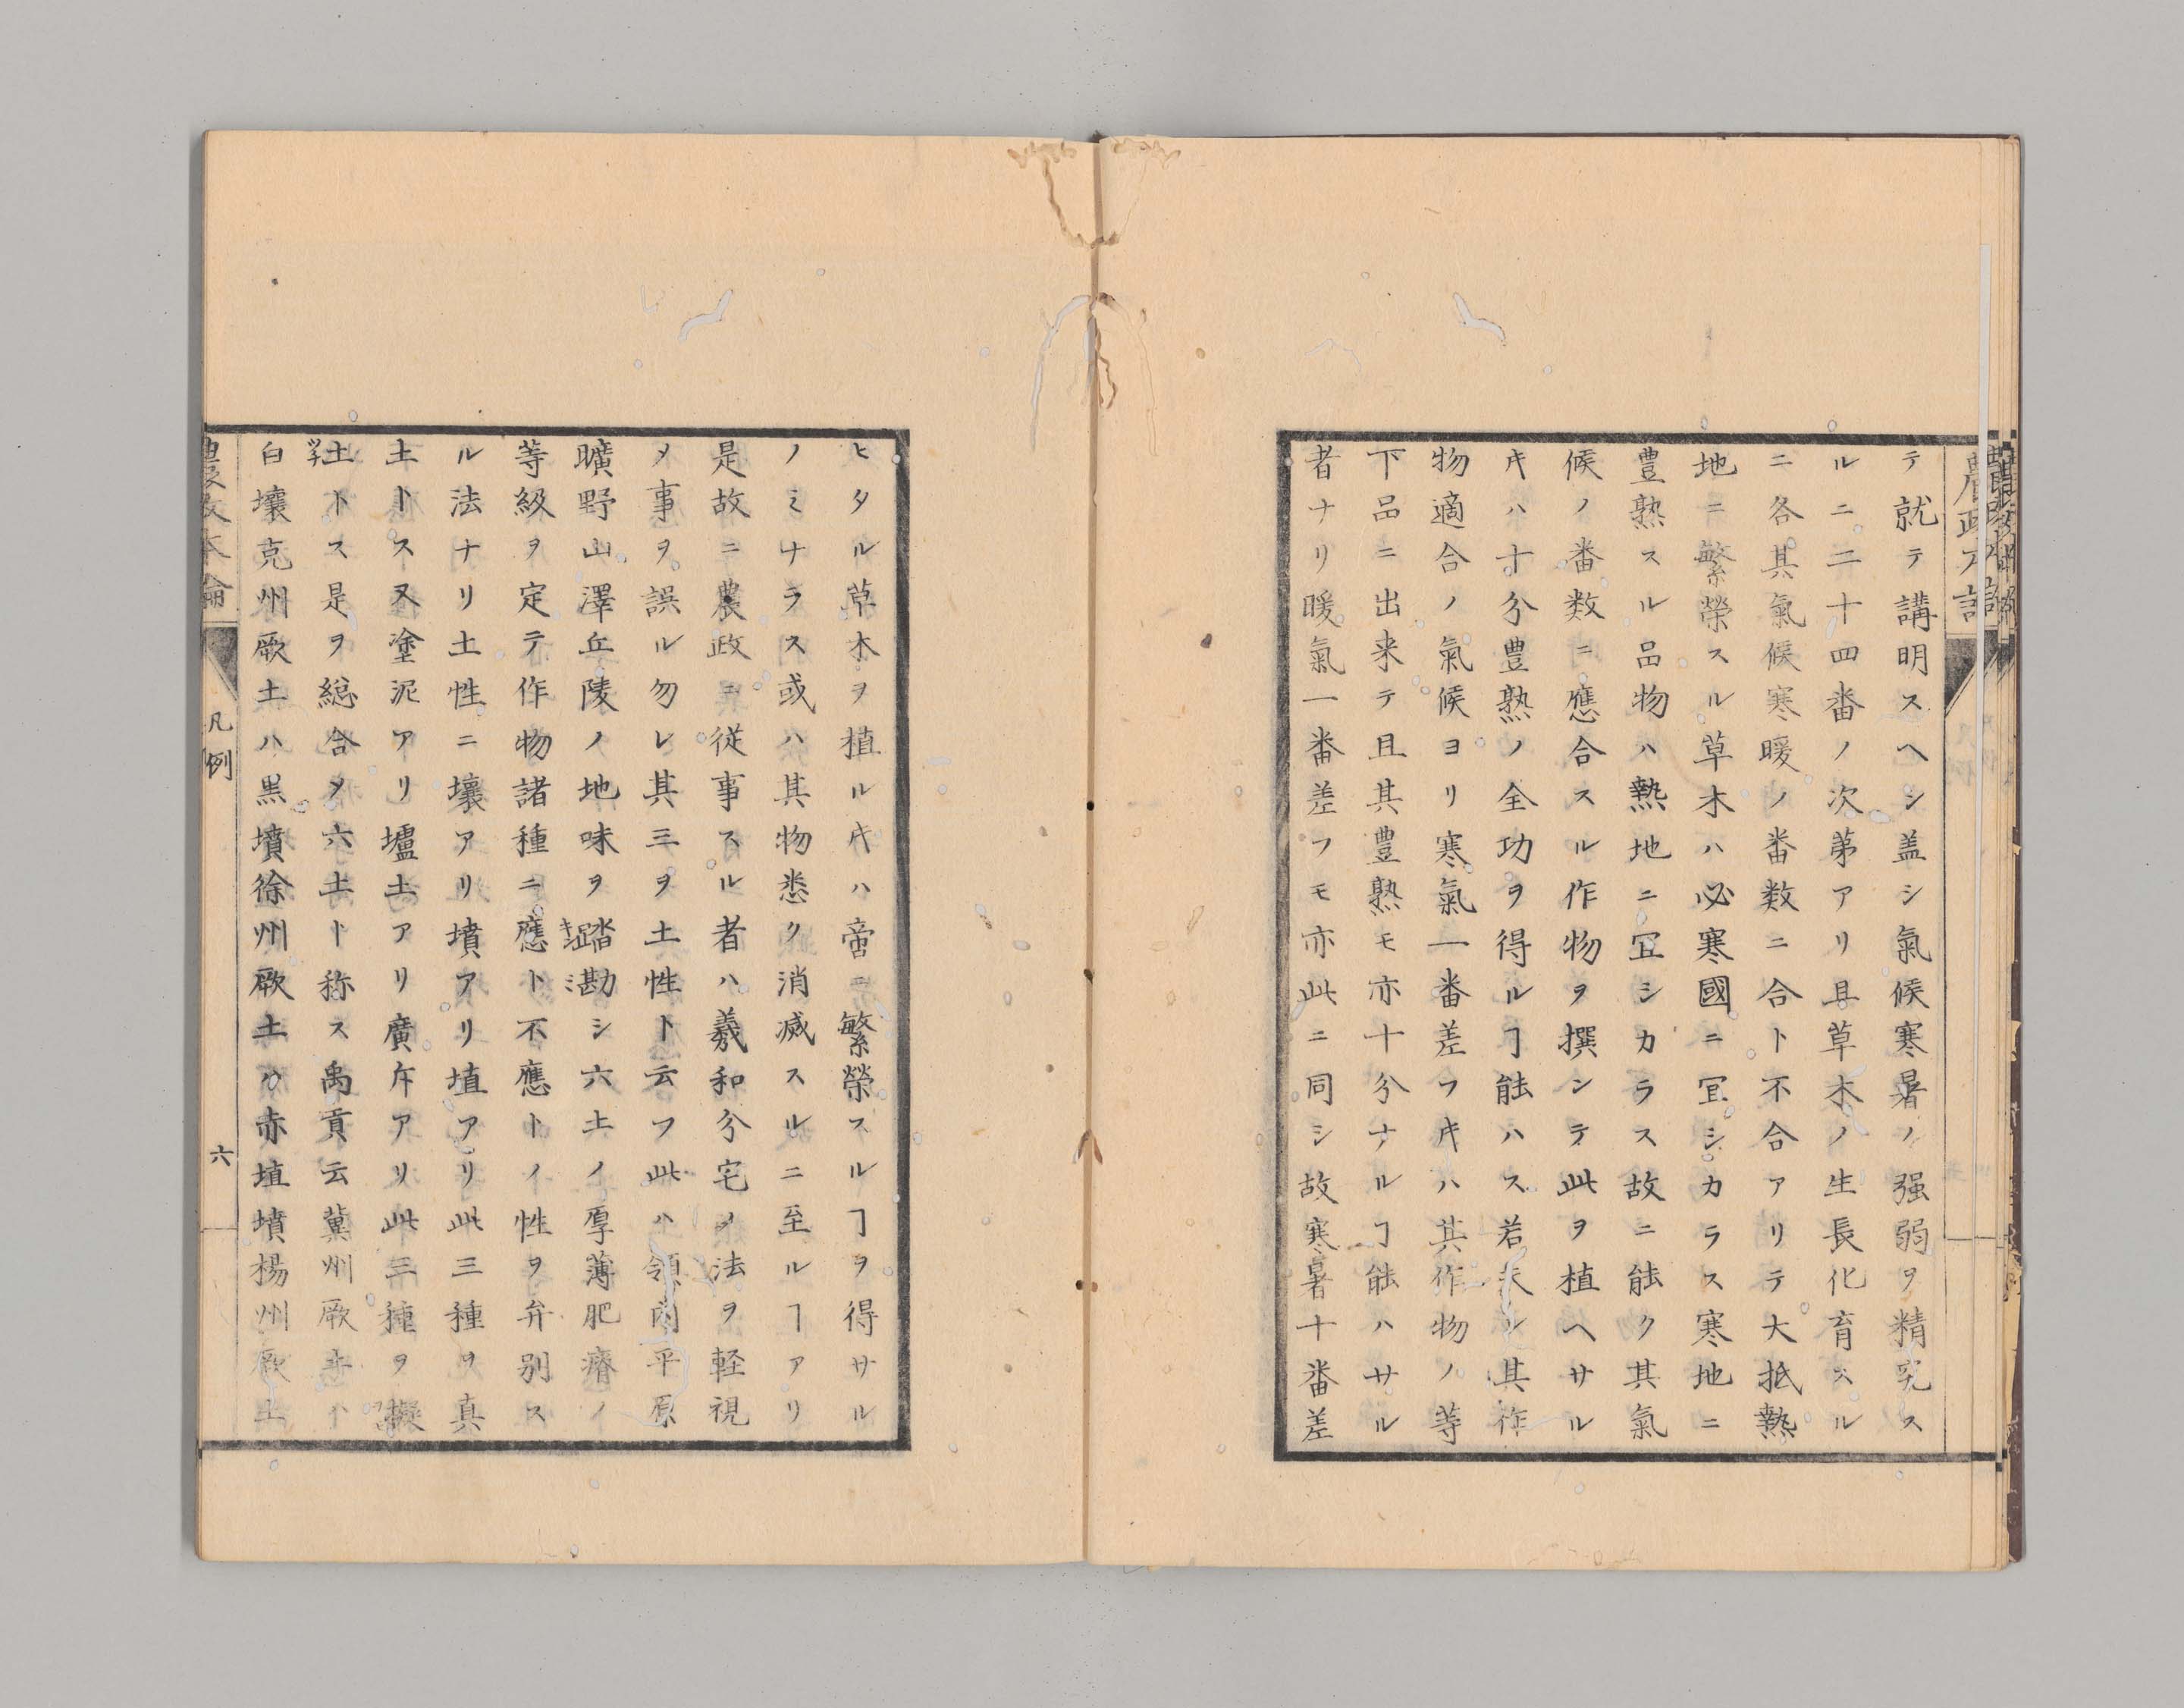 テ就テ講明スヘシ盖シ氣候寒暑ノ强弱ヲ精究ス
ルニ二十四番ノ次第アリ且草木ノ生長化育スル
ニ各其氣候寒暖ノ番数ニ合ト不合アリテ大抵熱
地ニ繁榮スル草木ハ必寒國ニ冝シカラス寒地ニ
豊熟スル品物ハ熱地ニ冝シカラス故ニ能ク其氣
候ノ番数ニ應合スル作物ヲ撰ンテ此ヲ植ヘサル
キハ十分豊熟ノ全功ヲ得ルヿ能ハス若夫レ其作
物適合ノ氣候ヨリ寒氣一番差フキハ其作物ノ等
下品ニ出来テ且其豊熟モ亦十分ナルヿ能ハサル
者ナリ暖氣一番差フモ亦此ニ同シ故寒暑十番差
ヒタル草木ヲ植ルキハ啻ニ繁榮スルヿヲ得サル
ノミナラス或ハ其物悉ク消滅スルニ至ルヿアリ
是故ニ農政ニ従事スル者ハ羲和分宅ノ法ヲ軽視
メ事ヲ誤ル勿レ其三ヲ土性ト云フ此ハ領内平原
曠野山澤丘陵ノ地味ヲ踏勘シ六土ノ厚薄肥瘠ノ
等級ヲ定テ作物諸種ニ應ト不應トノ性ヲ弁別ス
ル法ナリ土性ニ壤アリ墳アリ埴アリ此三種ヲ真
土トス又塗泥アリ壚土アリ廣斥アリ此三種ヲ擬
土トス是ヲ總合メ六土ト称ス禹貢云冀州厥土ハ
白壤兗州厥土ハ黒墳徐州厥土ハ赤埴墳揚州厥土
農政本論
凡例
六